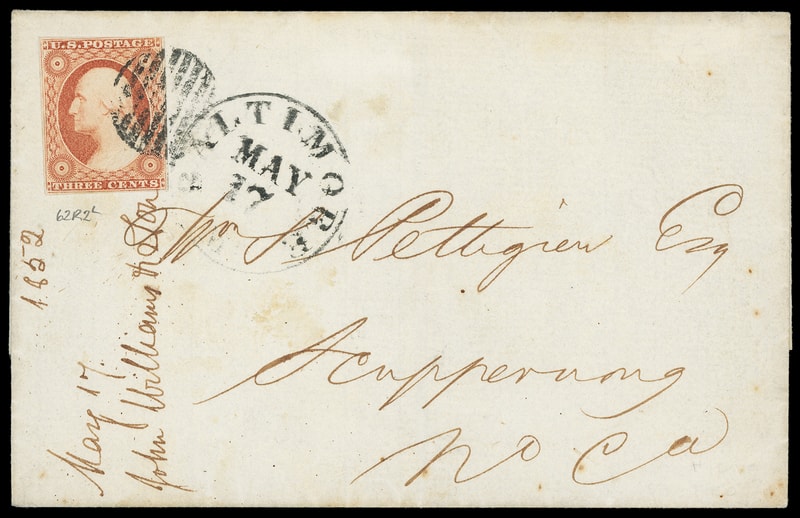 U.S. POSTAGE
THREE CENTS
62R2L
BALTIMORE
MAY
17
Wm S. Pettigrew Esq
Scuppernong
No Ca
May 17. 1852
John Williams & Son